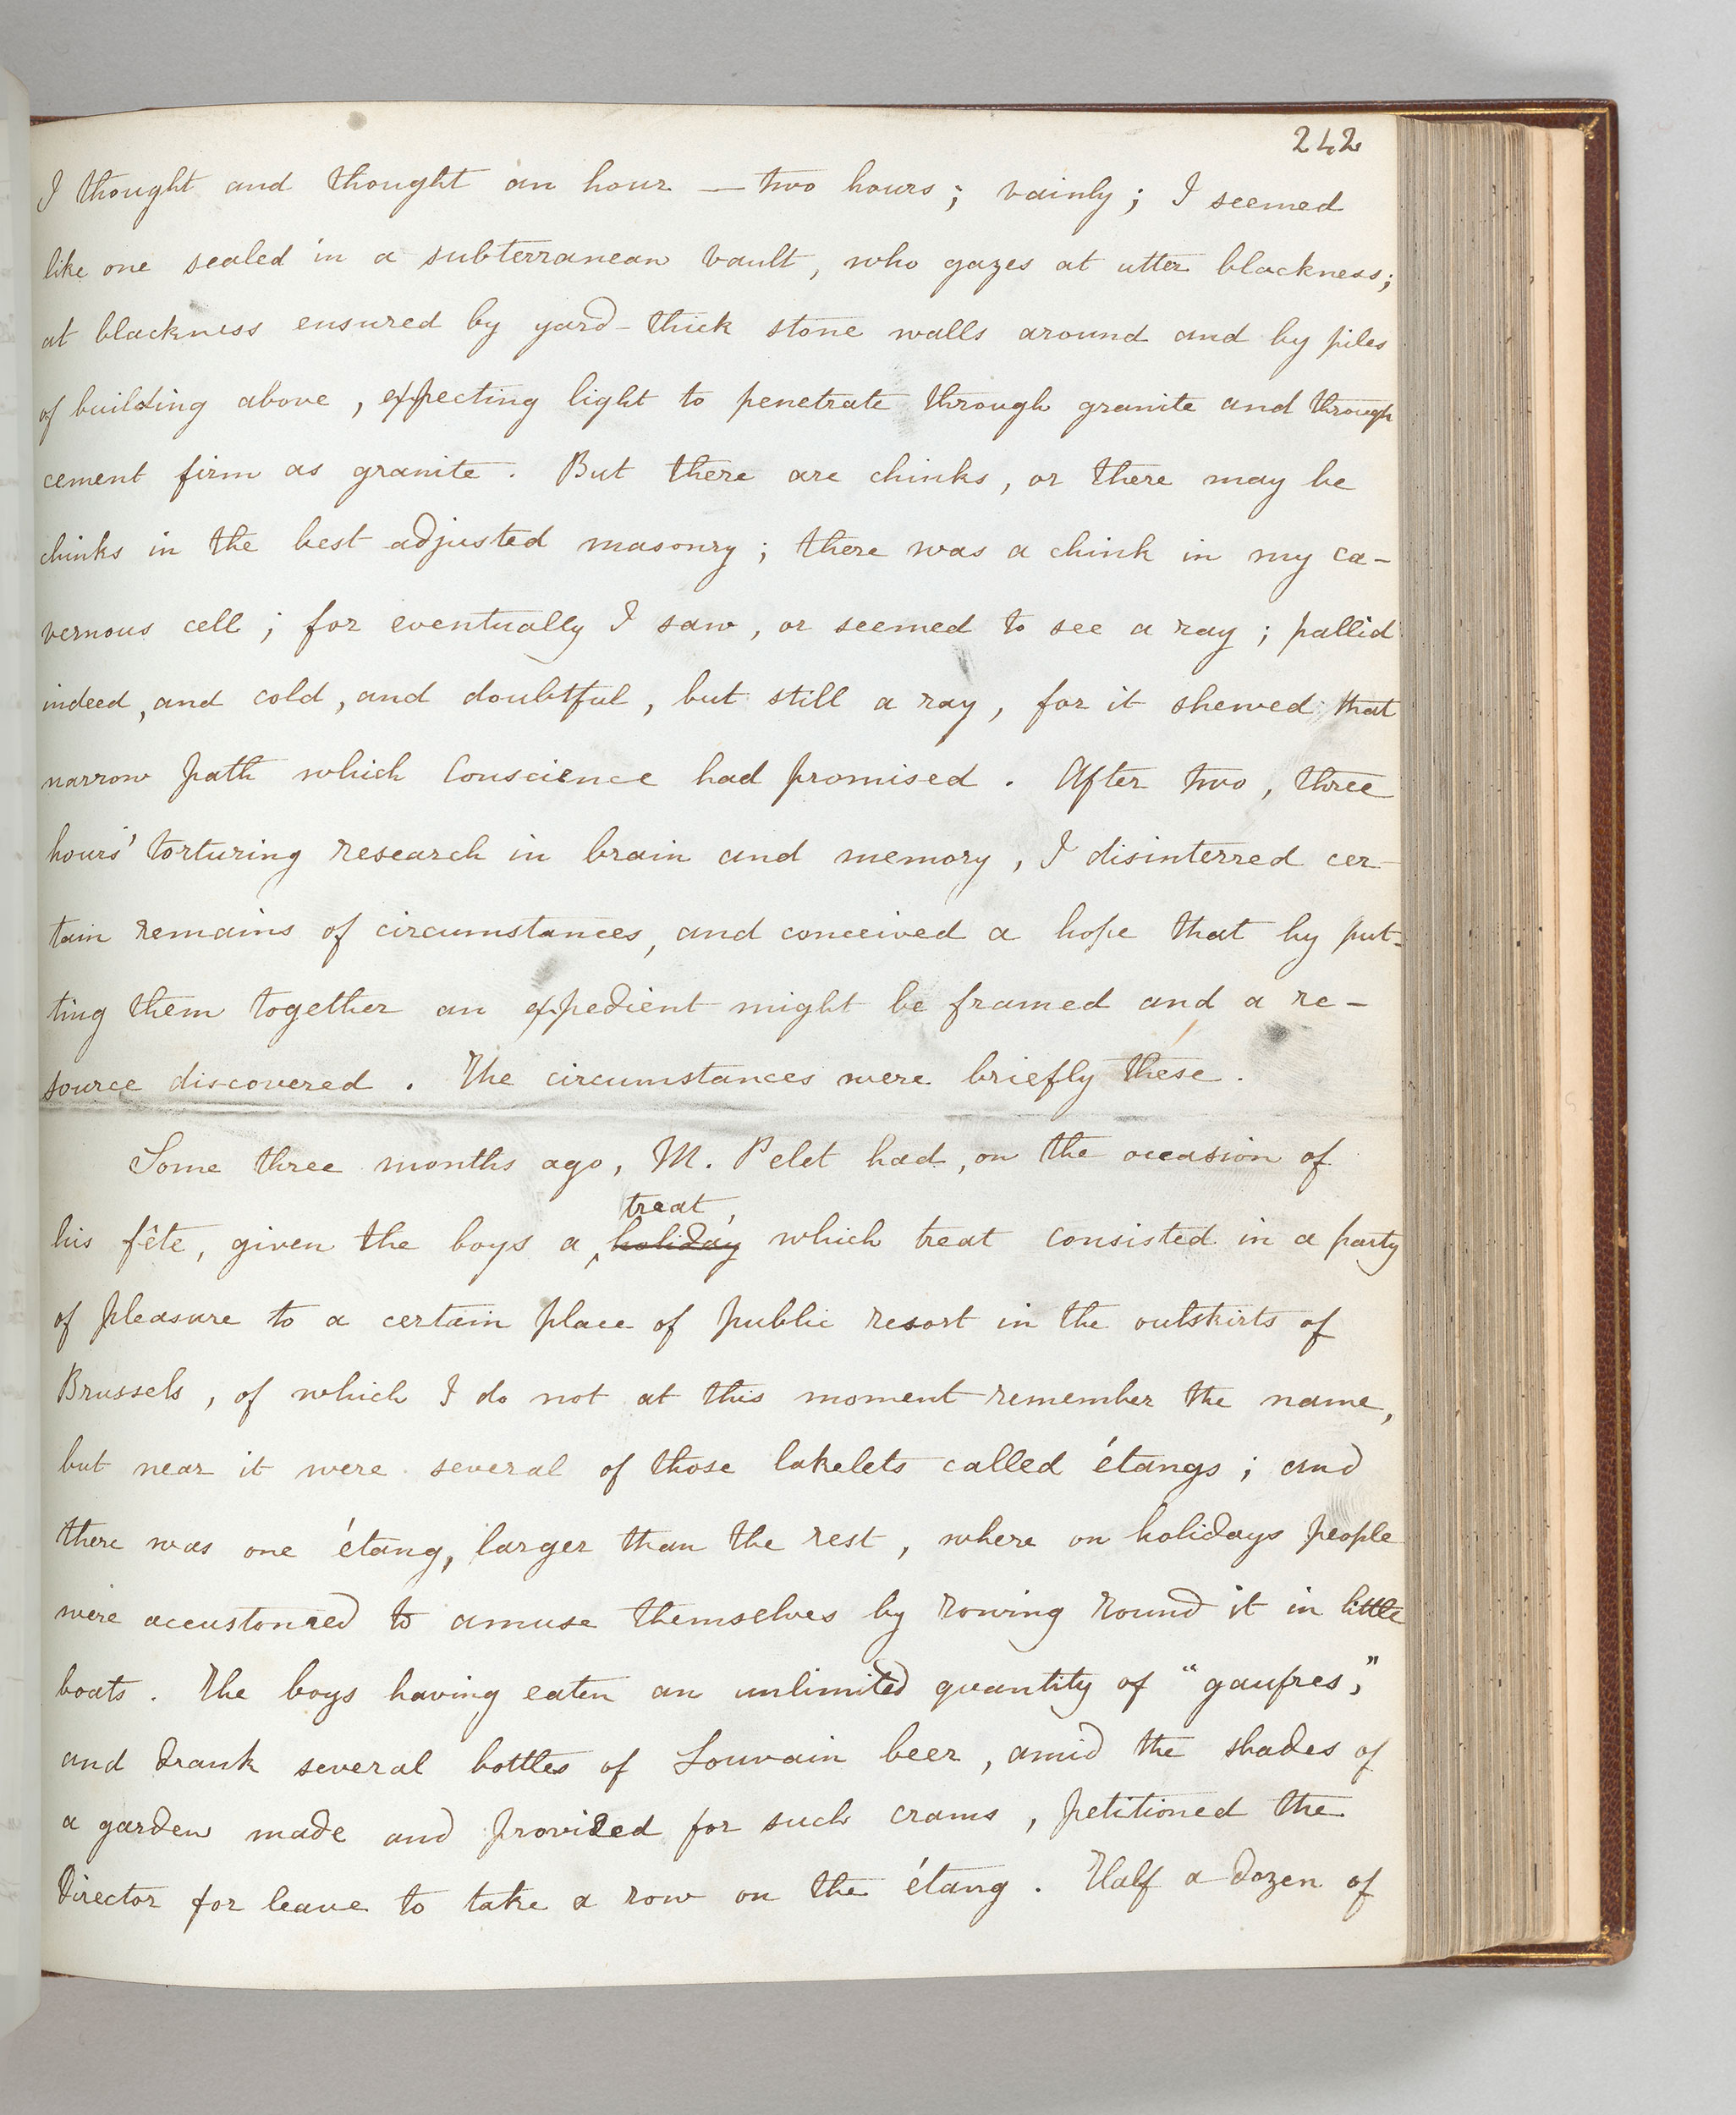 242
I thought and thought an hour — two hours; vainly; I seemed
like one sealed in a subterranean vault, who gazes at utter blackness;
at blackness ensured by yard-thick stone walls around and by piles
of building above, expecting light to penetrate through granite and through
cement firm as granite. But there are chinks, or there may be
chinks in the best adjusted masonry; there was a chink in my ca-
vernous cell; for eventually I saw, or seemed to see a ray; pallid
indeed, and cold, and doubtful, but still a ray, for it shewed that
narrow path which Conscience had promised. After two, three
hours' torturing research in brain and memory, I disinterred cer-
tain remains of circumstances, and conceived a hope that by put-
ting them together an expedient might be framed and a re-
source discovered. The circumstances were briefly these.
Some three months ago, M. Pelet had, on the occasion of
treat,
his fête, given the boys a holiday which treat consisted in a party
of pleasure to a certain place of public resort in the outskirts of
Brussels, of which I do not at this moment remember the name,
but near it were several of those lakelets called étangs; and
there was one étang, larger than the rest, where on holidays people
were accustomed to amuse themselves by rowing round it in little
boats. The boys having eaten an unlimited quantity of "gaufres,"
and drank several bottles of Louvain beer, amid the shades of
a garden made and provided for such crams, petitioned the
Director for leave to take a row on the étang. Half a dozen of